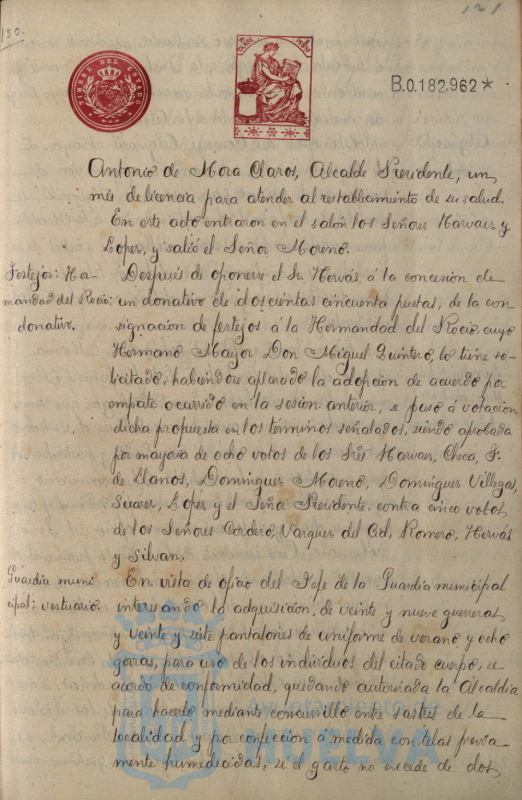 150.
121
TIMBRE DEL ESTADO
B.0.182.962*
Antonio de Mora Claros, Alcalde Presidente, un
més de licencia para atender al restablecimiento de su salud.
En este acto entraron en el salón los Señores Narvaez y
Lopez, y salió el Señor Moreno.
Festejos: Her-
mandad del Rocio:
donativo.
Después de oponerse el Sr. Hervás á la concesión de
un donativo de doscientas cincuenta pesetas, de la con
signación de festejos á la Hermandad del Rocio, cuyo
Hermano Mayor Don Miguel Quintero, lo tiene so-
licitado, habiéndose aplazado la adopción de acuerdo por
empate ocurrido en la sesión anterior, se puso á votación
dicha propuesta en los términos señalados, siendo aprobada
por mayoria de ocho votos de los Sres Narvaez, Checa, G. de
Llanos, Dominguez Moreno, Dominguez Villegas,
Suarez, Lopez y el Señor Presidente, contra cinco votos
de los Señores Cordero, Vazquez del Cid, Romero, Hervás
y Silvan.
Guardia muni
cipal: vestuario.
En vista de oficio del Jefe de la Guardia municipal
interesando la adquisición de veinte y nueve guerreras
y veinte y siete pantalones de uniforme de verano y ocho
gorras, para uso de los individuos del citado cuerpo, se
acordó de conformidad, quedando autorizada la Alcaldia
para hacerlo mediante concursillo entre sastres de la
localidad y por confección á medida con telas previa
mente humedecidas, si el gasto no excede de dos
HUELVA